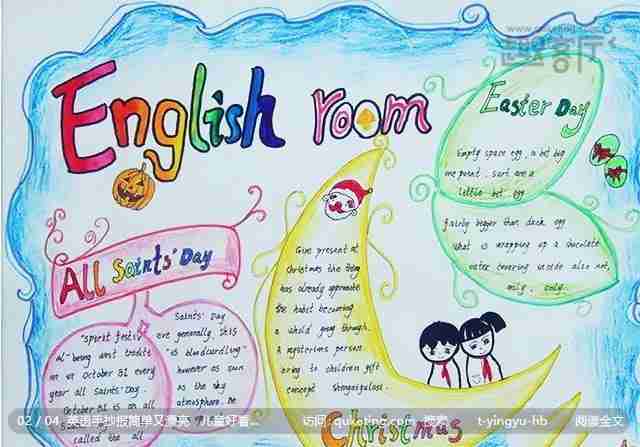 English room
Easter Day
Empty space egg, a bit big
me point, sort are a
little bit egg
fairly bigger than duck egg
what is wrapping up a chocolate
water covering inside also not,
only, only.
All Saints' Day
"spirit festiv
al" being west traditi
on in October 31 every
year all Saints' Day.
October 31 is on all
called the all
Saints' Day
eve generally. It is
"is blood curdling"
however as sun
as the sky
atmosphere. Be
Give present at
Christmas the thing
has already approximate
the habit becoming
a whole going through.
A mysterious person
bring to children gift
concept
Christmas
趣客厅
02 / 04 英语手抄报简单又漂亮 儿童好看...
访问: quketing.com 搜索: t-yingyu-hb 阅读全文